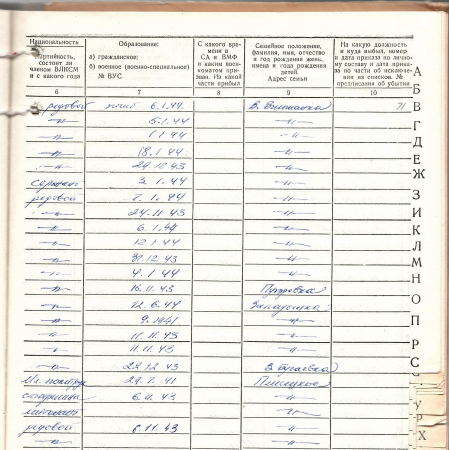 Национальность
Партийность, состоит ли членом ВЛКСМ и с какого года
Образование:
а) гражданское;
б) военное (военно-специальное)
№ ВУС
С какого времени в СА и ВМФ и каким военкоматом призван. Из какой части прибыл
Семейное положение, фамилия, имя, отчество и год рождения жены, имена и года рождения детей.
Адрес семьи
На какую должность и куда выбыл, номер и дата приказа по личному составу и дата приказа по части об исключении из списков. № предписания об убытии
6 7 8 9 10
рядовой погиб 6.1.44. 71
-"- 5.1.44 -"-
-"- 1.1.44 -"-
-"- 18.1.44 -"-
-"- 24.12.43 -"-
сержант 3.1.44 -"-
рядовой 7.1.44 -"-
-"- 24.11.43 -"-
-"- 6.1.44 -"-
-"- 12.1.44 -"-
-"- 31.12.43 -"-
-"- 4.1.44 -"-
-"- 16.11.43
-"- 12.6.44
-"- 9.1941 -"-
-"- 11.11.43 -"-
-"- 11.11.43 -"-
-"- 22.12.43
Мл. политрук 29.7.41
6.11.43 -"-
лейтенант -"-
рядовой 6.11.43 -"-
-"- -"-
А
Б
В
Г
Д
Е Ж
З
И
К
Л
М
Н
О
П
Р С
У
Р Х